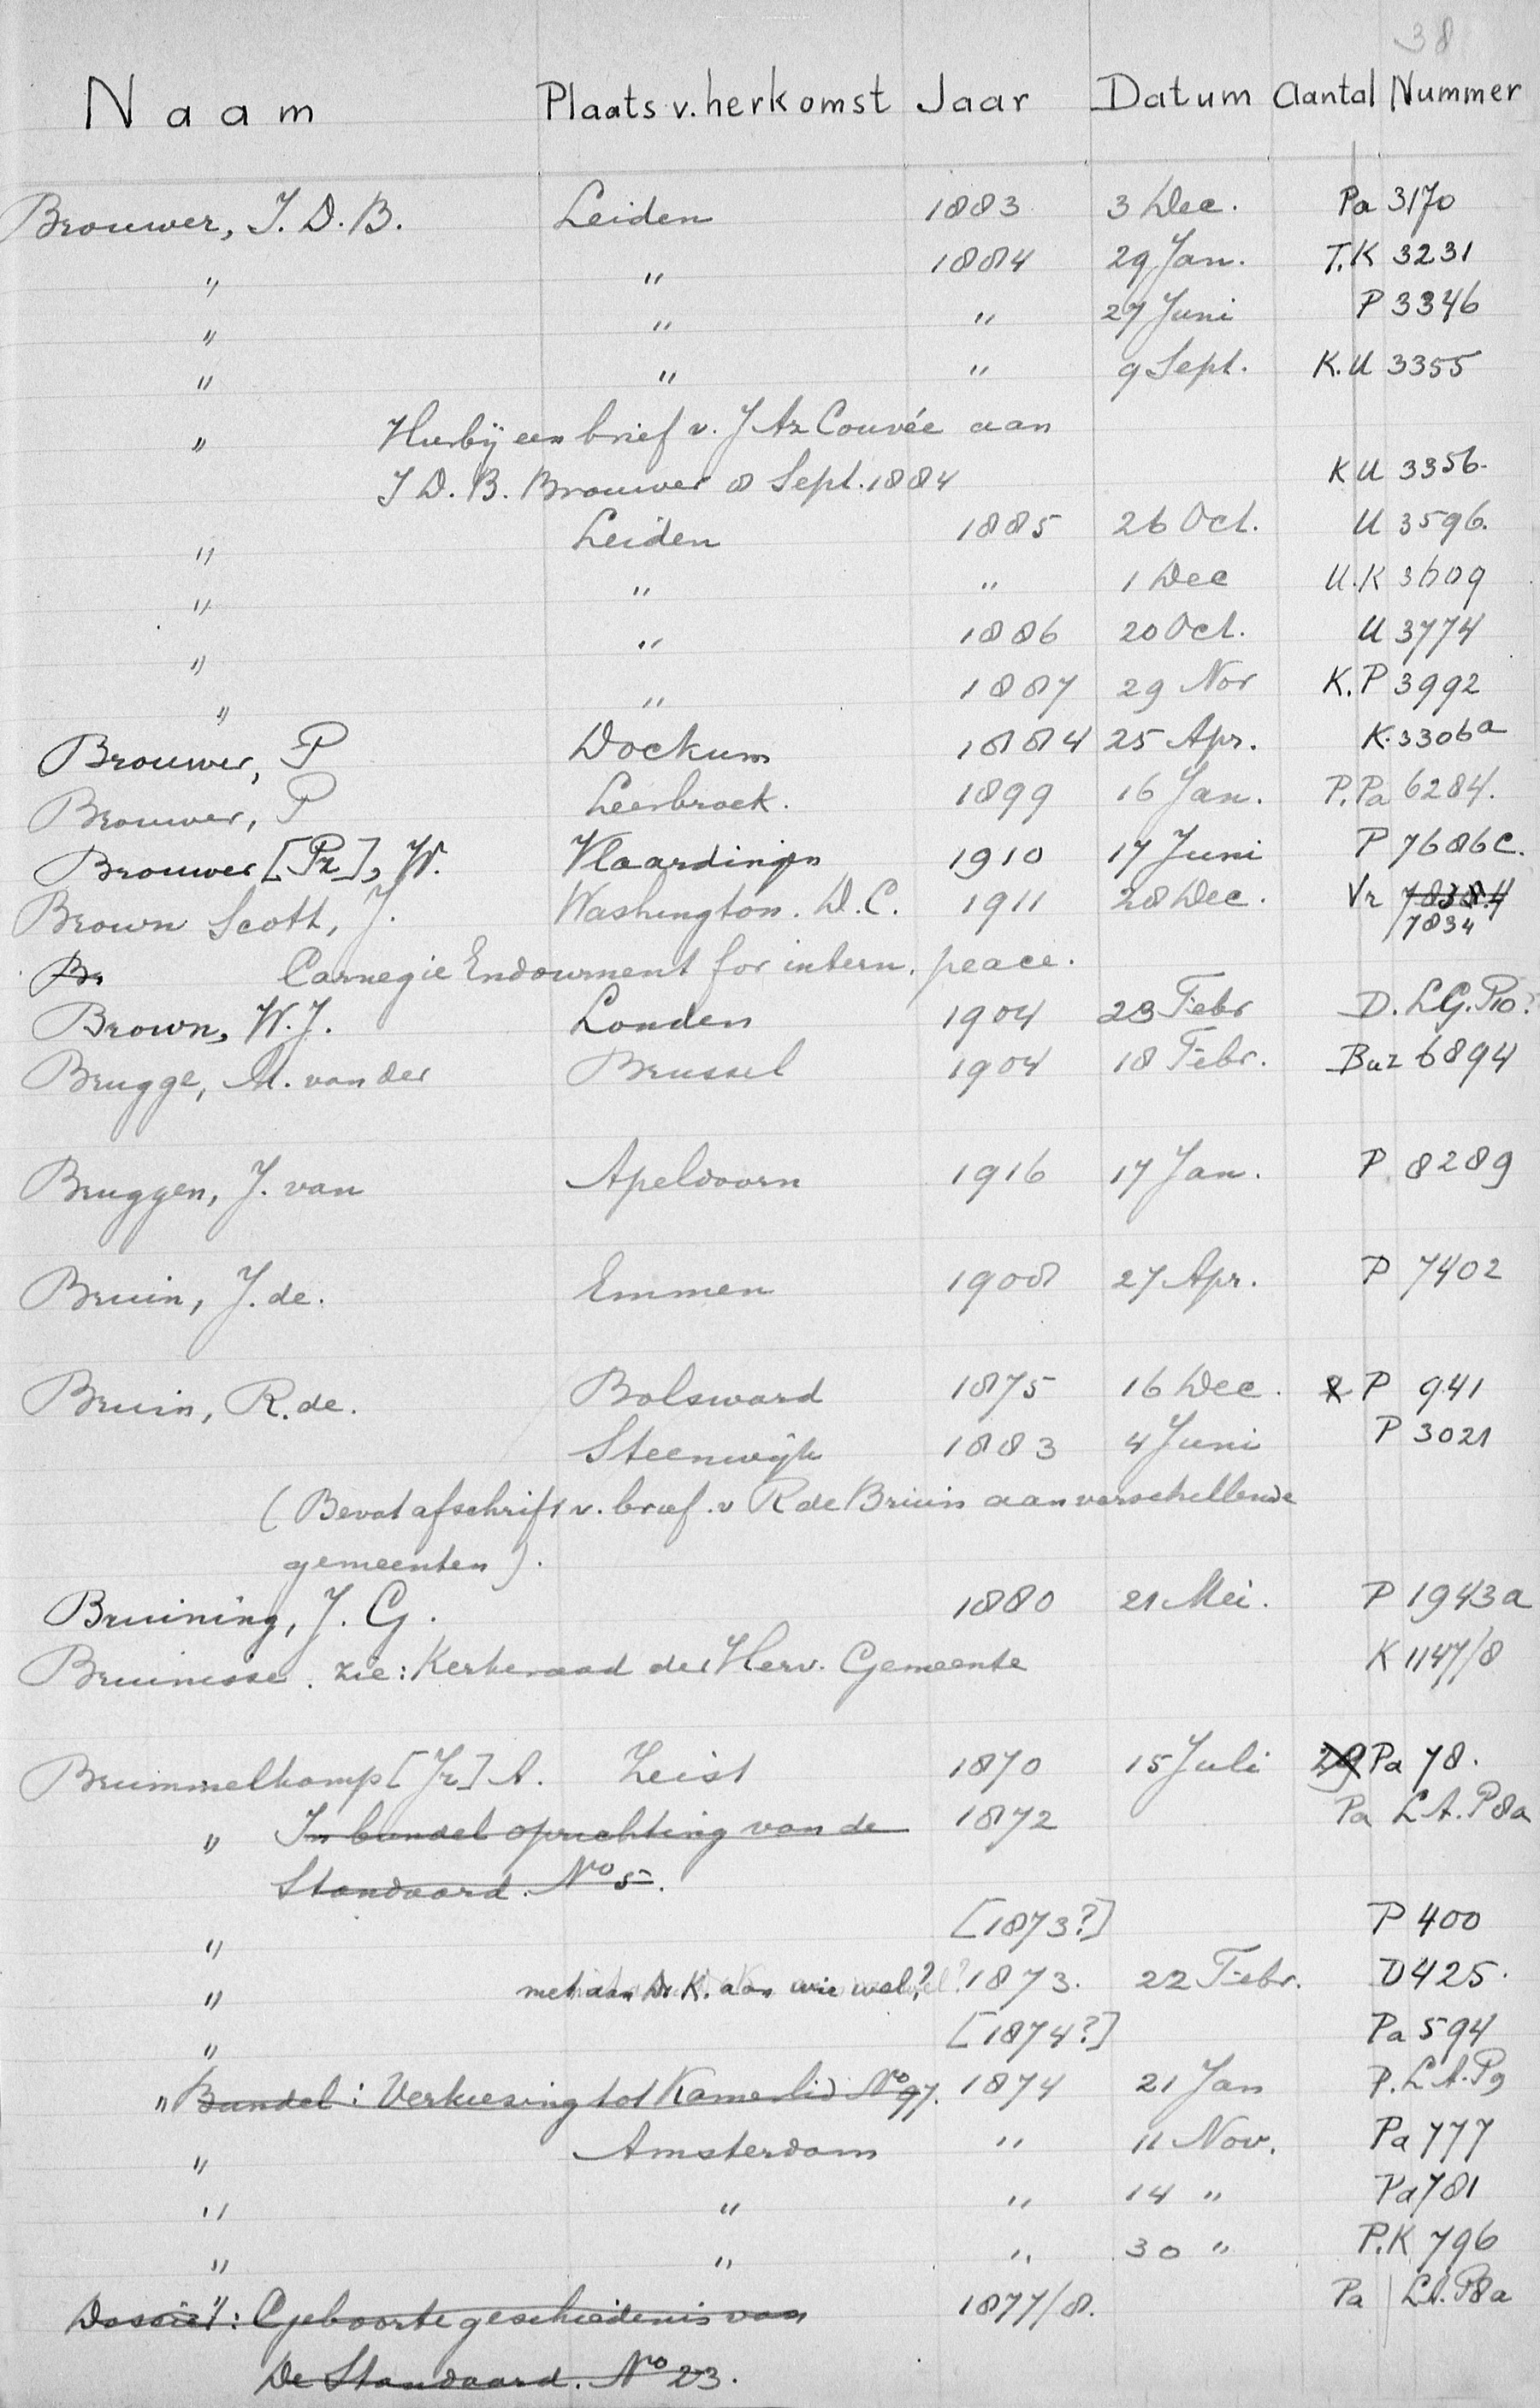 38
Naam Plaats v. herkomst Jaar Datum Aantal Nummer
Brouwer, J. D. B. Leiden 1883 3 Dec. Pa 3170
" " 1884 29 Jan. T.K 3231
" " " 27 Juni P 3346
" " " 9 Sept. K.U 3355
" Hierbij een brief v. J Az Couvée aan
J D. B. Brouwer 8 Sept. 1884 K U 3356.
" Leiden 1885 26 Oct. U 3596.
" " " 1 Dec U.K 3609
" " 1886 20 Oct. U 3774
" " 1887 29 Nov K.P 3992
Brouwer, P Dockum 1884 25 Apr. K. 3306a
Brouwer, P Leerbroek. 1899 16 Jan. P.Pa 6284.
Brouwer [Pz], W. Vlaardingen 1910 17 Juni P 7686c.
Brown Scott, J. Washington. D.C. 1911 28 Dec. Vr 7834
Br Carnegie Endowment for intern. peace.
Brown, W. J. Londen 1904 23 Febr D. LG. P10.
Brugge, M. van der Brussel 1904 18 Febr. Buz 6894
Bruggen, J. van Apeldoorn 1916 17 Jan. P. 8289
Bruin, J. de. Emmen 1908 27 Apr. P 7402
Bruin, R. de. Bolsward 1875 16 Dec. P 941
Steenwijk 1883 4 Juni P 3021
(Bevat afschrift v. brief. v R de Bruin aan verschillende
gemeenten).
Bruining, J. G. 1880 21 Mei. P 1943a
Bruinisse. zie: Kerkeraad der Herv. Gemeente K 1147/8
Brummelkamp [Jr] A. Zeist 1870 15 Juli 29 Pa 78.
" In bundel oprichting van de 1872 Pa L A. P8a
Standaard. No 5.
" [1873?] P 400
" met aan Dr K. aan wie wel? 1873. 22 Febr. D 425.
" [1874?] Pa 594
" Bundel: Verkiesing tot Kamerlid No 97. 1874 21 Jan P. L A. P9
" Amsterdam " 11 Nov. Pa 777
" " " 14 " Pa 781
" " " 30 " P.K 796
" Dossier: Geboortegeschiedenis van 1877/8. Pa LA. P8a
De Standaard. No 23.